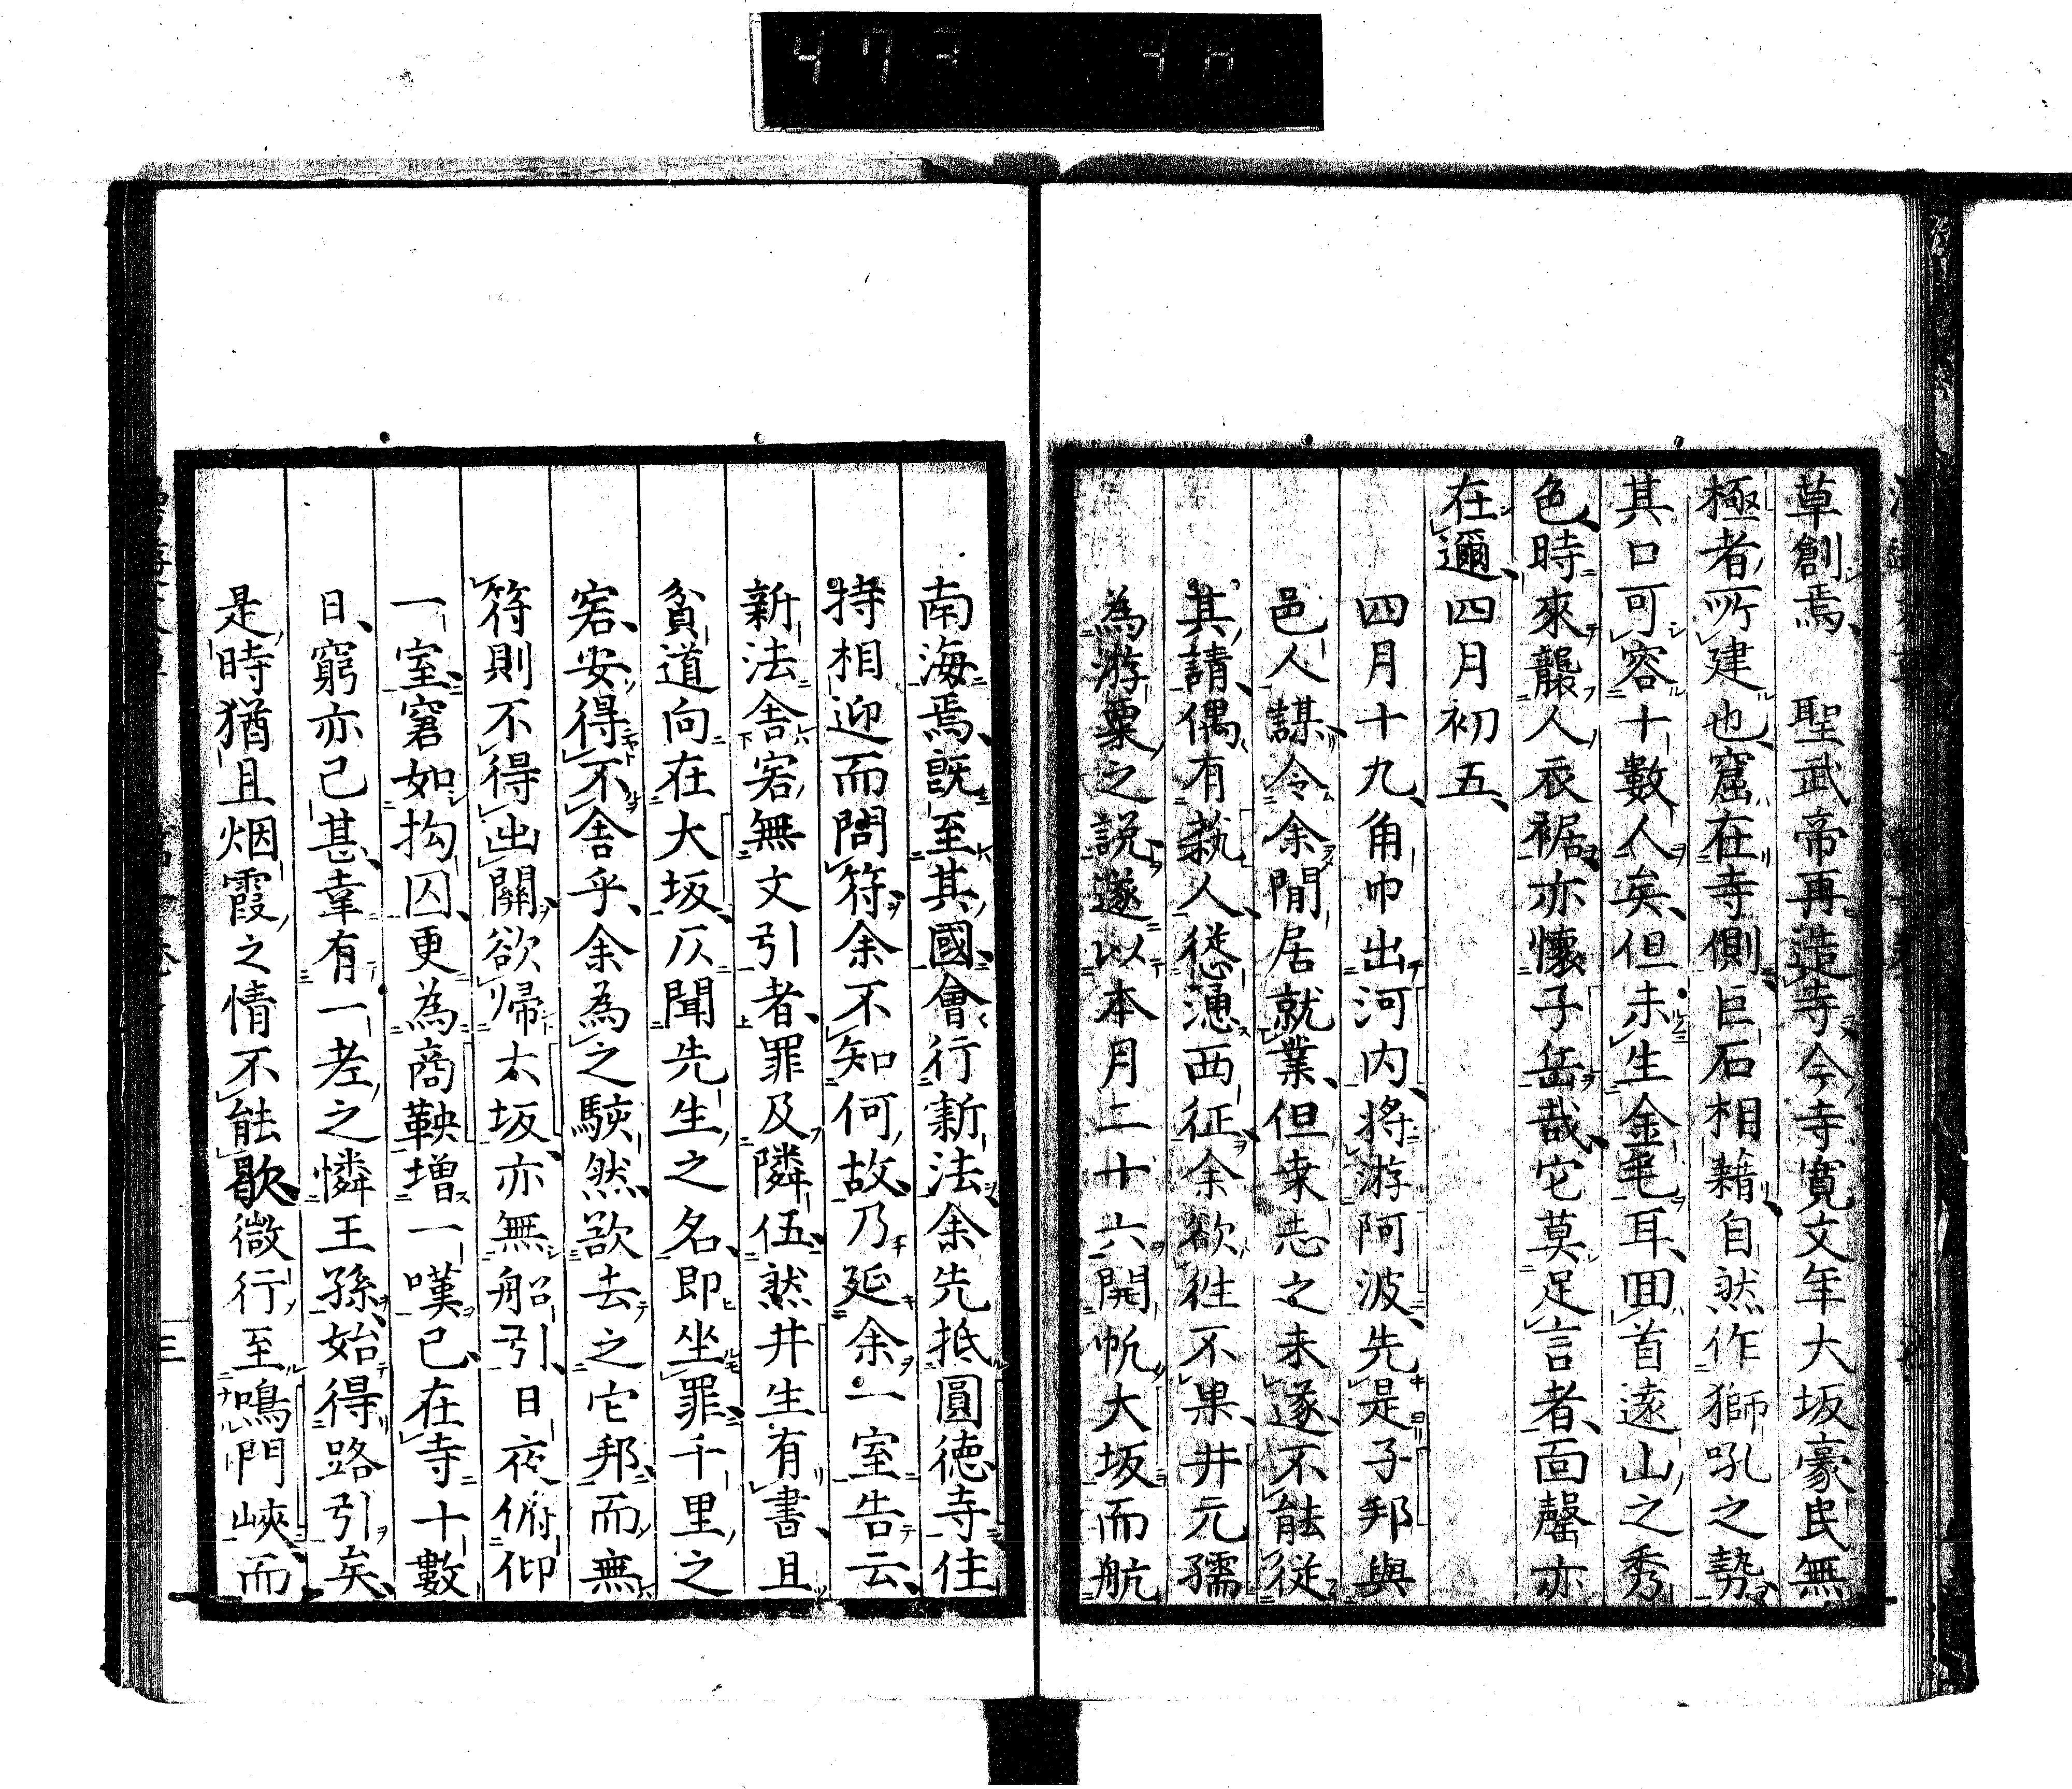 草創焉　聖武帝再造寺今寺寛文年大坂豪民無
極者所建也窟在寺側巨石相藉自然作獅吼之勢
其口可容十數人矣但未生金毛耳回首遠山之秀
色時來襲人衣裾亦懷子岳哉它莫足言者面罄亦
在邇四月初五
四月十九角巾出河内将游阿波先是子邦與
邑人謀令余閒居就業但桒志之未遂不能從
其請偶有執人慫慂西征余欲徃不果井元孺
為游粟之説遂以本月二十六開帆大坂而航
南海焉既至其國會行新法余先抵圓徳寺住
持相迎而問符余不知何故乃延余一室告云
新法舎宻無文引者罪及隣伍然井生有書且
貧道向在大坂仄聞先生之名即坐罪千里之
宻安得不舎乎余為之駭然欲去之它邦而無
符則不得出關欲帰太坂亦無船引日夜俯仰
一室窘如拘囚更為商鞅増一嘆已在寺十數
日窮亦已甚幸有一老之憐王孫始得路引矣
是時猶且烟霞之情不能歇微行至鳴門峽而
三